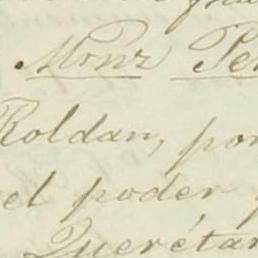 Monz Pe
Roldan, por
el poder
Querétar